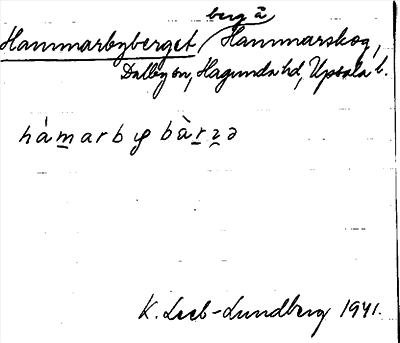 berg å
Hammarbyberget / Hammarskog,
Dalby sn, Hagunda hd, Upsala l.
hàmarby bàrzə
K. Leeb-Lundberg 1941.